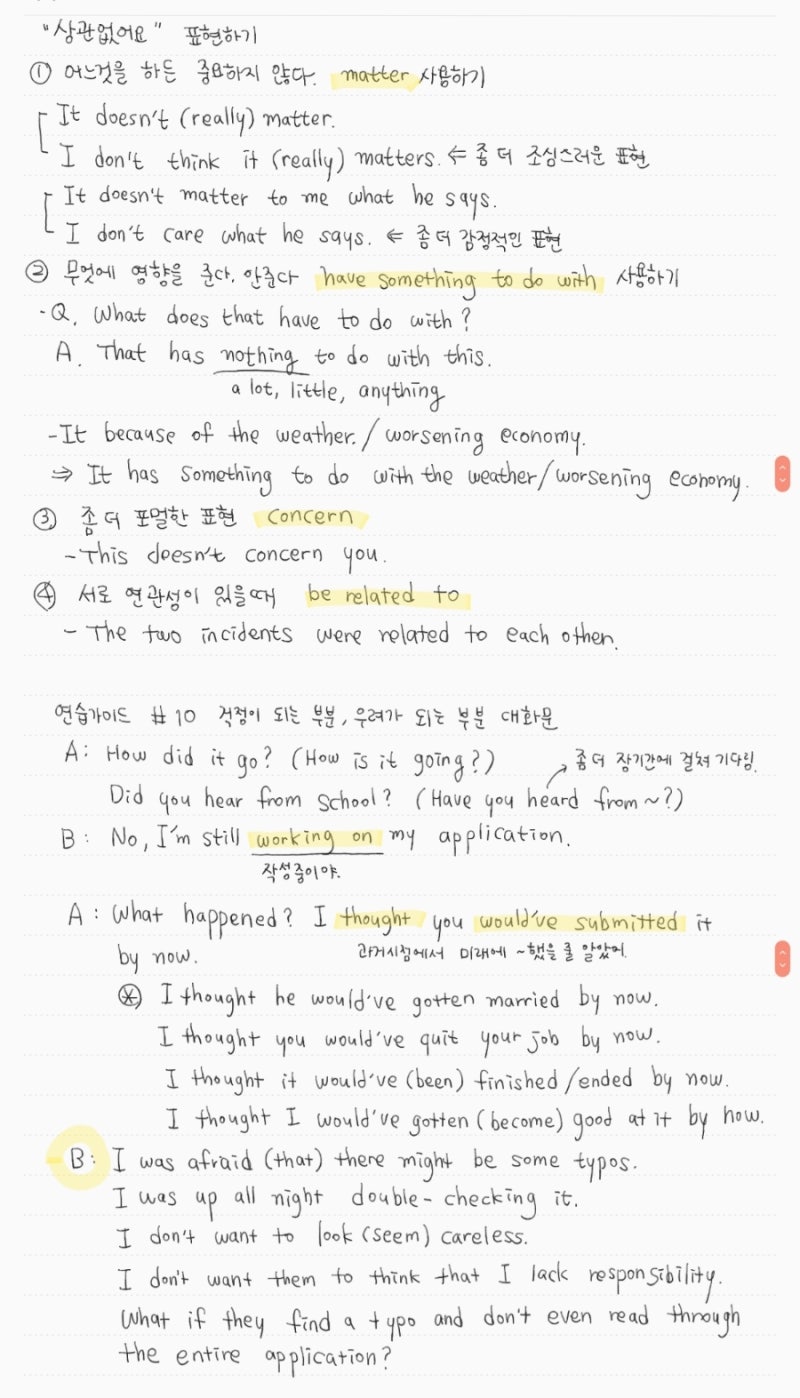 "상관없어요" 표현하기
① 어느것을 하든 중요하지 않다. matter 사용하기
It doesn't (really) matter.
I don't think it (really) matters. ⇐ 좀 더 조심스러운 표현
It doesn't matter to me what he says.
I don't care what he says. ⇐ 좀 더 감정적인 표현
② 무엇에 영향을 준다, 안준다 have something to do with 사용하기
-Q. What does that have to do with?
A. That has nothing to do with this.
a lot, little, anything
-It because of the weather. / worsening economy.
⇒ It has something to do with the weather/worsening economy.
③ 좀 더 포멀한 표현 concern
-This doesn't concern you.
④ 서로 연관성이 있을때 be related to
- The two incidents were related to each other.
연습가이드 #10 걱정이 되는 부분, 우려가 되는 부분 대화문
A: How did it go? (How is it going?) 좀 더 장기간에 걸쳐 기다림.
Did you hear from school? (Have you heard from ~?)
B: No, I'm still working on my application.
작성중이야.
A: What happened? I thought you would've submitted it
by now. 과거시점에서 미래에 ~했을 줄 알았어.
⊛ I thought he would've gotten married by now.
I thought you would've quit your job by now.
I thought it would've (been) finished/ended by now.
I thought I would've gotten (become) good at it by now.
B: I was afraid (that) there might be some typos.
I was up all night double-checking it.
I don't want to look (seem) careless.
I don't want them to think that I lack responsibility.
What if they find a typo and don't even read through
the entire application?